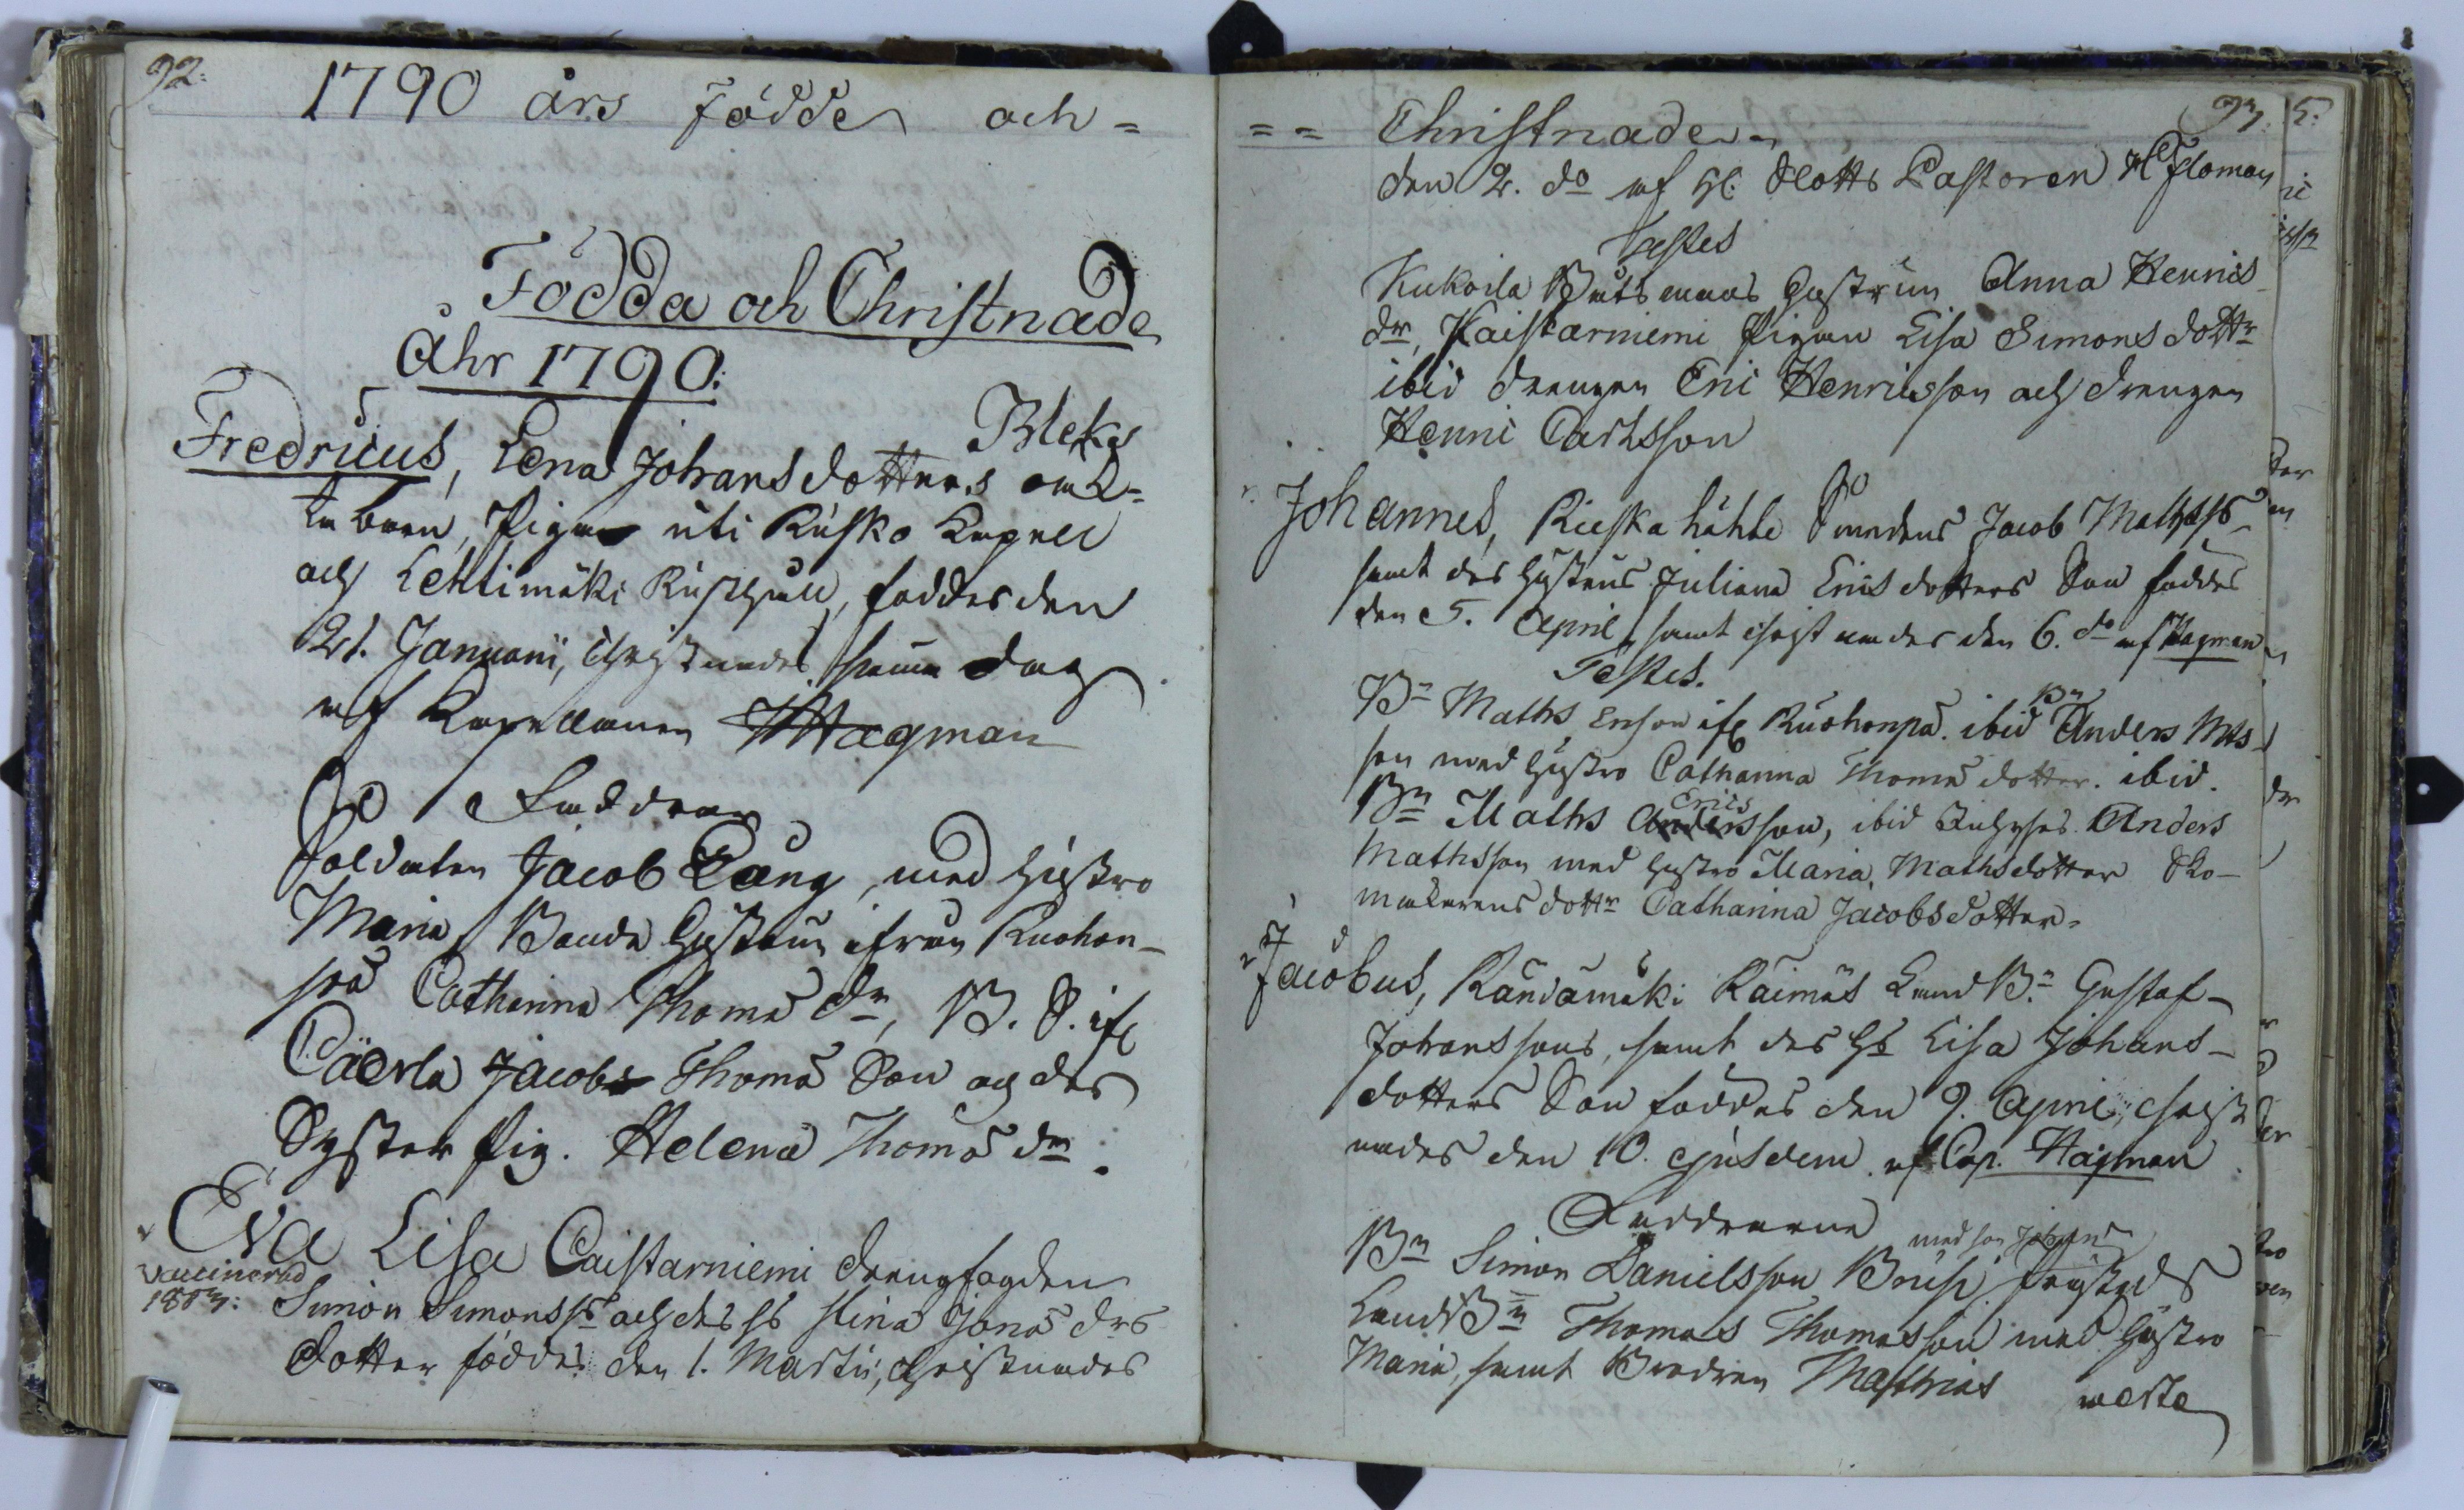 92.
1790 års Födde och =
Födda och Christnade
Åhr 1790.
Bleks
Fredricus, Lena Johansdotters oäk=
ta barn, Pigan uti Rusko Capell
och Lehtimäki Rusthåll, föddes den
21. Januarii, Christnades samma dag
af Capellanen Hagman
Faddrar
Soldaten Jacob Lång, med hustru
Maria, Bonde Hustrun ifrån Ruohon-
pä Catharina Thomæ dr, B. S. ifr
Caerla Jacob Thomæ Son och des
Syster Pig. Helena Thomæ dr.
Eva Lisa Caistarniemi drengfogden
Vaccinerad
1803: Simon Simonss. och des h. Stina Jonæ drs
dotter föddes den 1. Martii, Christnades
= = Christnade
93.
den 2. do af H. Slotts Pastoren Floman
Testes
Kukoila Båtsmans Hustrun Anna Henrics
dr, Kaistarniemi Pigan Lisa Simons dottr
ibid drengen Eric Henricsson och drengen
Henric Carlsson
Johannes, Rieskalähte Smedens Jacob Mathss.
samt des hustrus Juliana Erics dotters Son föddes
den 5. April, samt christnades den 6. do af Hagman
Testes.
Bn Maths Ericson ifr Ruohonpä. ibid Bn Anders Mts
son med hustro Catharina Thomæ dotter. ibid.
Erics
Bn Maths Andersson, ibid Anders
Mathsson med hustro Maria Mathsdotter Sko-
makarens dottr Catharina Jacobsdotter.
Jacobus, Randamäki Raimäs Land Bn Gustaf
Johanssons, samt des hs Lisa Johans-
dotters Son föddes den 9. April, christ
nades den 10. ejusdem. af Cap. Hagman
Faddrarne
med son Johan
Bn Simon Danielsson Brusi
Land Bn Thomas Thomasson med hustro
Maria, samt Brodren Matthias